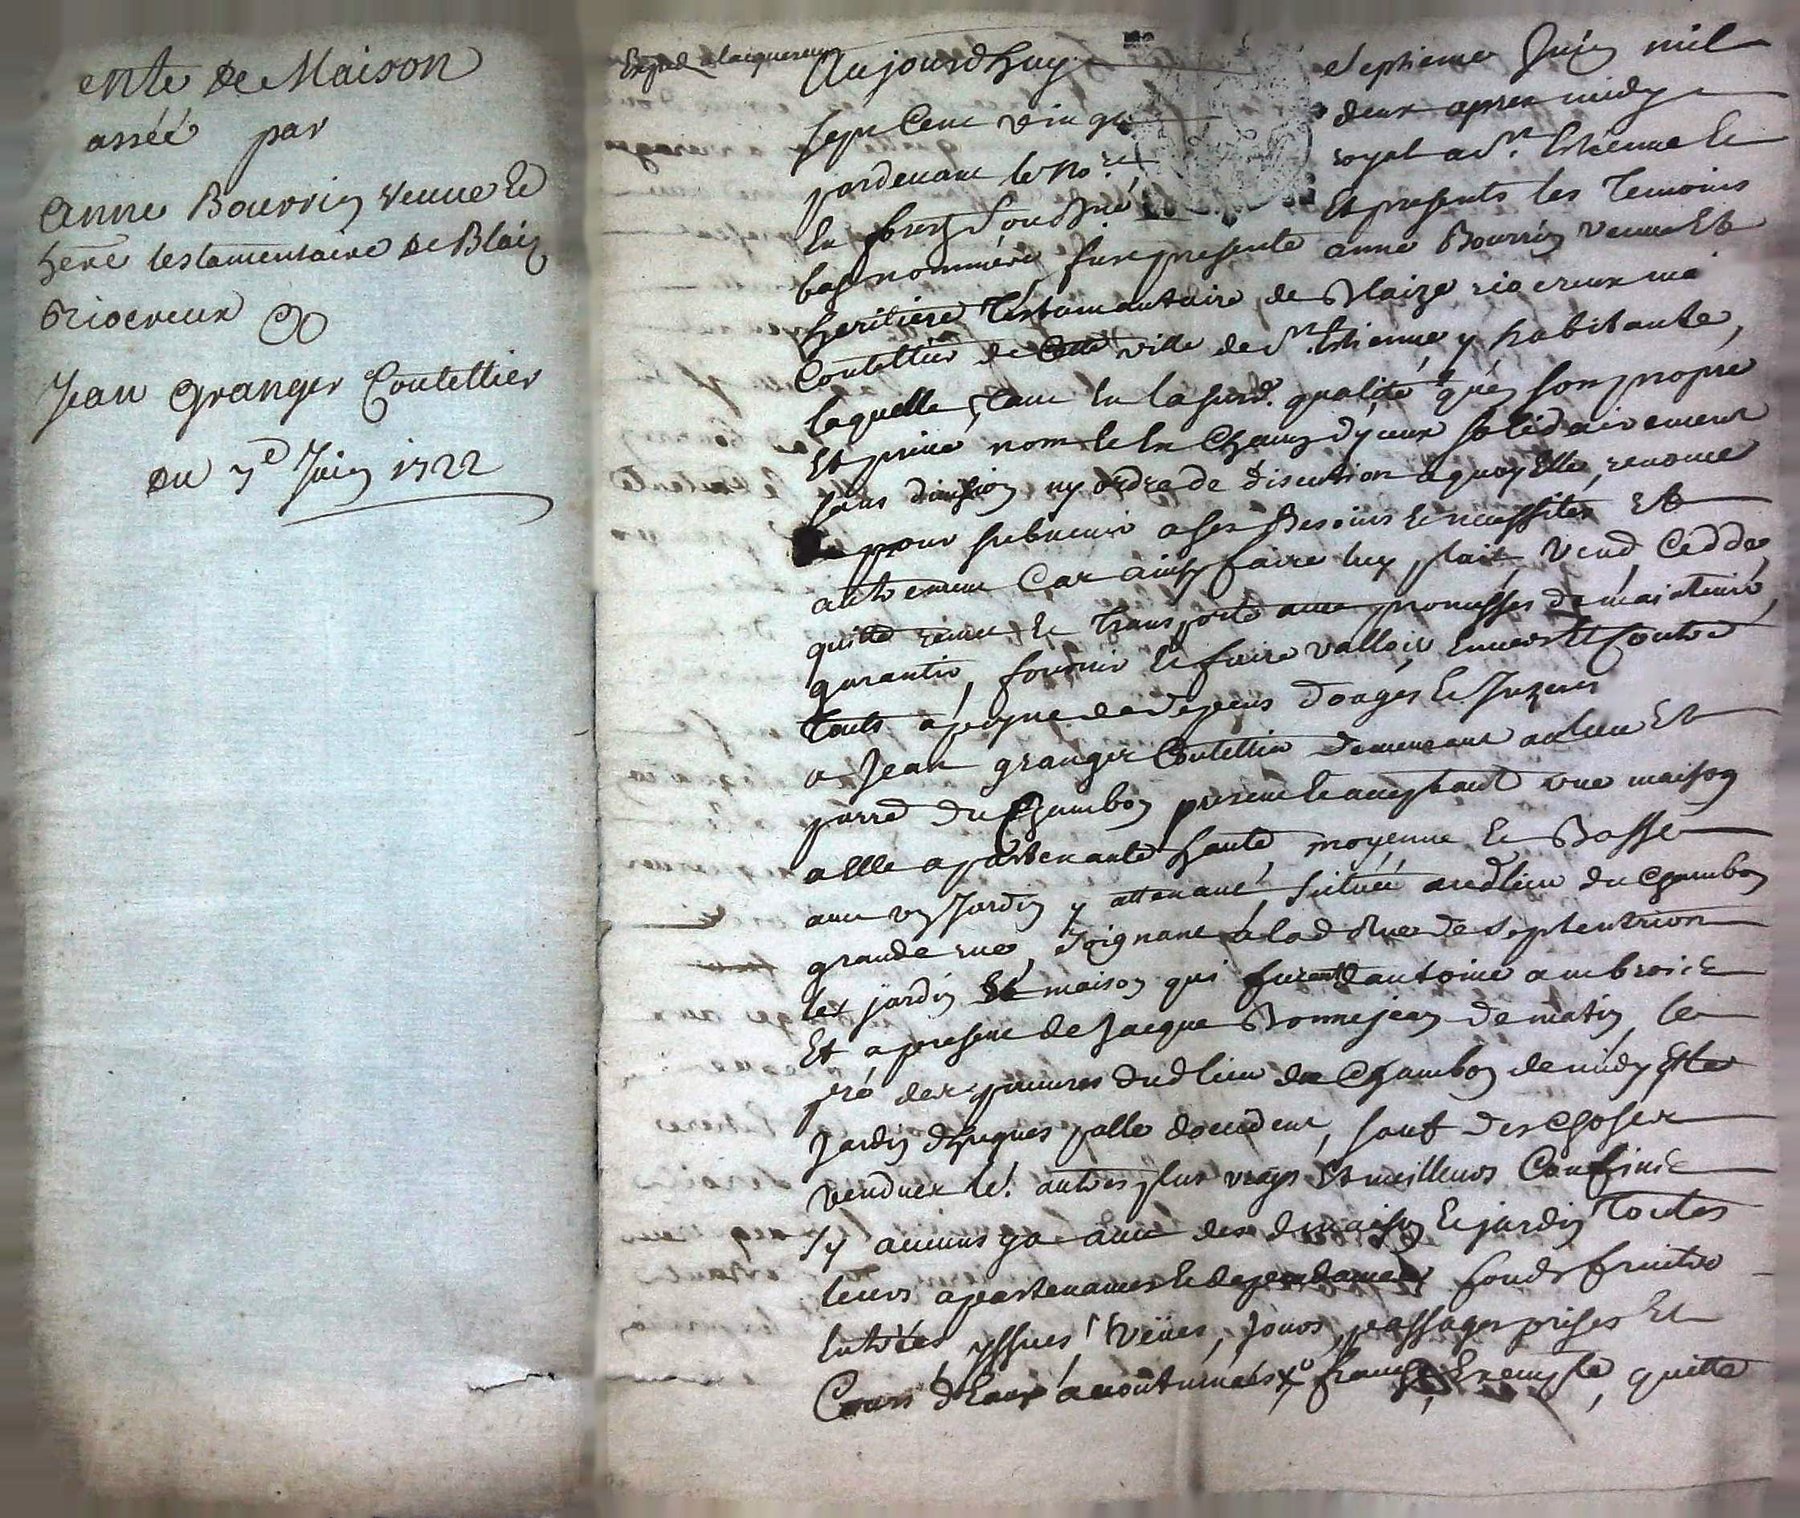 ente de Maison
assée par
Anne Bourrin veuve et
here testamentaire de Blaiz
Riocreux &
Jean Granger Coutellier
du 7e Juin 1722
Exped a lacquereur
Aujourdhuy septieme Juin mil
sept cent vingt deux apres midy
pardevant le No.re royal a St. Estienne
en forest soussné et presents les temoins
bas nommés fust presente anne Bourrin veuve et
heritiere testamantaire de Blaize riocreux
Coutellier de cette ville de St. Estienne y habitante,
laquelle, tant en lasusd. qualité qu'en son propre
et privé nom et en chacun d'yceux solidairement
sans division ny ordre de discution aquoy elle, renonce
pour subvenir a ses Besoins et necessites et
autrement Car ainsy faire luy plait, vend, Cedde,
quitte remet et transporte avec promesses de maintenir,
garantir, fournir et faire valloir envers et contre
touts a peyne de depens
a Jean granger Coutellier demeurant au lieu et
parre du Chambon present et acceptant une maison
a elle apartenante haute, moyenne et Basse
avec un Jardin y attenant, scituée aud lieu du Chambon
grande rue, Joignant a lad Rue de septentrion
les jardin et maison qui furent dantoine ambroise
Et a present de Jacque Bonnejean de matin, le
pré des pauvres dud lieu de Chambon de midy et le
Jardin palle doccident, sauf des choses
vendues les autres plus vrays et meilleurs Confins
sy aucuns y a avec desd maison et jardin toutes
leurs apartenances et dependances fonds fruits
entrées yssues, veües, jours, passages prises et
Cours d'Eaux acoutumées franche, Exempte, quitte